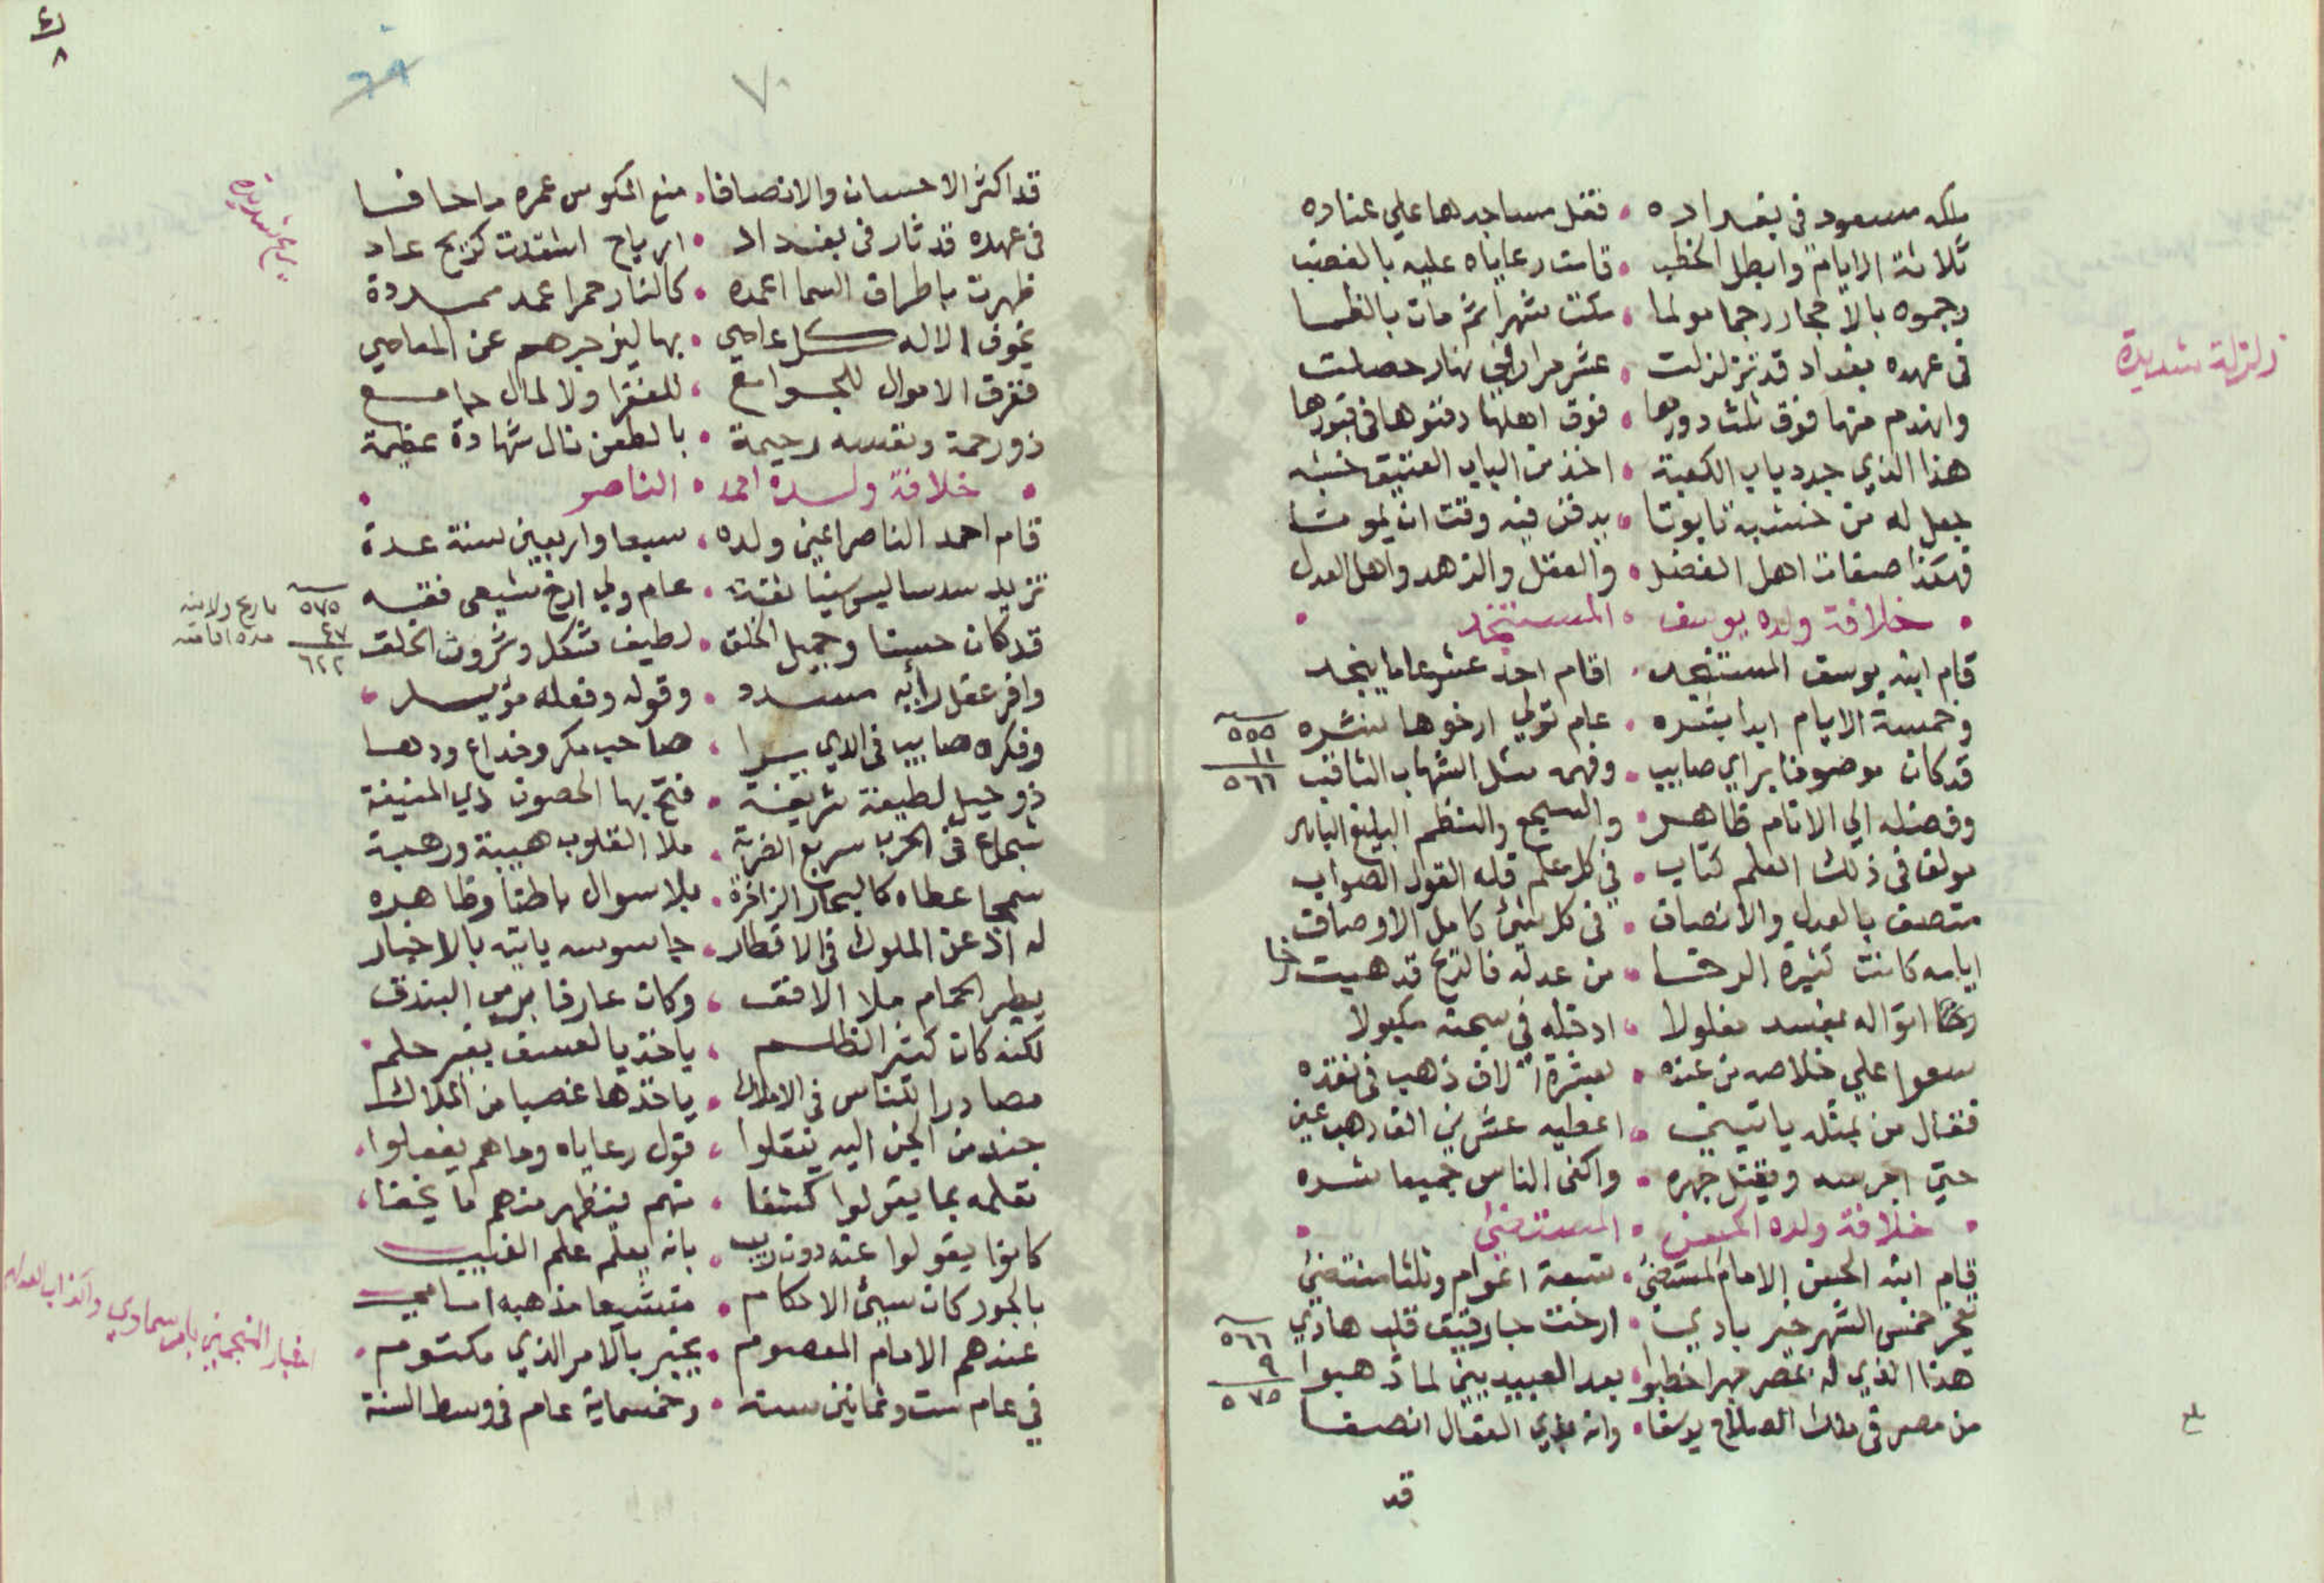 ملكه مسعود في بغداده • فقفل مساجدها علي عناده
ثلاثة الايام وابطل الخطب • قامت رعاياه عليه بالغضب
رجموه بالاحجار رجما مولما • مكث شهرا ثم مات بالظما
في عهده بغداد قد تزلزلت • عشر مرار في نهار حصلت
زلزلة شديدة
وانهدم منها فوق ثلث دورها • فوق اهلها دفنوها في قبورها
هذا الذي جدد باب الكعبة • اخذ من الباب العتيق خشبه
جعل له من خشبه تابوتا • يدفن فيه وقت ان يموتا
فهكذا صفات اهل الفضل • والعقل والزهد واهل العدل
• خلافة ولده يوسف • المستنجد •
قام ابنه يوسف المستنجد • اقام احد عشر عاما ينجد
وخمسة الايام ابدا بشره • عام تولي ارخوها بنشره
٥٥٥
١١
٥٦٦
قد كان موصوفا براي صايب • وفهمه مثل الشهاب الثاقب
وفضله الي الانام ظاهر • والسجع والنظم البليغ الباهر
مولف في ذلك العلم كتاب • في كل علم قله القول الصواب
متصف بالعدل والانصاف • في كل شئ كامل الاوصاف
ايامه كانت كثيرة الرخا • من عدله فالريح قد هبت رخا
اتوا له بمفسد مغلولا • ادخله في سجنه مكبولا
سعوا علي خلاصه من عنده • بعشرة الاف ذهب في نقده
فقال من بمثله ياتيني • اعطيه عشرين الف ذهب عين
حتي اجرسه ويقتل جهره • واكفى الناس جميعا شره
• خلافة ولده الحسن • المستضئ •
قام ابنه الحسن الامام المستضئ • تسعة اعوام وثلثا منتضئ
خمس الشهر خير بادي • ارخت جا رقيق قلب هادي
٥٦٦
٩
٥٧٥
هذا الذي له بمصر جهرا خطبوا • بعد العبيديين لما ذهبوا
من مصر في ملك الصلاح يوسفا • وانه بالقال انصفا
قد
٧٠
٦٩
قد اكثر الاحسان والانصافا • منع المكوس عمره ما حافا
في عهده قد ثار في بغداد • ارياح اشتدت كريح عاد
ريح شديدة
ظهرت باطراف السما اعمده • كالنار حمرا عمد ممددة
يخوف الاله كل عاصي • بها ليزجرهم عن المعاصي
ففرق الاموال للجوامع • للفقرا ولا لمال جامع
ذو رحمة ونفسه رحيمة • بالطعن نال شهادة عظيمة
• خلافة ولده احمد • الناصر •
قام احمد الناصر اعني ولده • سبعا واربعين سنة عدة
تزيد سدسا ليس سنيا ثقة • عام ولي ارخ شيعي فقيه
٥٧٥ تاريخ ولايته
٤٧ مدة اقامته
٦٢٢
قد كان حسنا وجميل الخلق • لطيف شكل وشروف الخلق
وافر عقل رأيه مسدد • وقوله وفعله مؤيد •
وفكره صايب في الذي يرا • صاحب مكر وخداع ودها
ذو حيل لطيفة شريفة • فتح بها الحصون ذي المنيفة
شجاع في الحرب سريع الضربة • ملا القلوب هيبة ورهبة
سمحا عطاه كالبحار الزاخرة • بلا سوال باطنا وظاهره
له اذ عن الملوك في الاقطار • جاسوسه ياتيه بالاخبار
يطير الحمام ملا الافق • وكان عارفا برمي البندق
لكنه كان كثير الظلم • ياخذ بالعسف بغير حلم •
مصادرا للناس في الاملاك • ياخذها غصبا من الملاك
جند من الجن اليه ينقلوا • قول رعاياه وما هم يفعلوا •
تعلمه بما يقولوا كشفا • منهم فنظهر منهم ما يخفا •
كانوا يقولوا عنه دون ريب • بانه يعلم علم الغيب
بالجور كان سيئ الاحكام • متشيعا مذهبه امامي
عندهم الامام المعصوم • يخبر بالامر الذي مكتوم •
اخبار المنجمين بامر سماوي
في عام ست وثمانين سنة • وخمسماية عام في وسط السنة